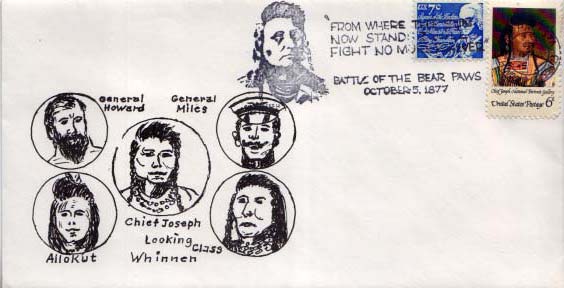 "FROM WHERE
NOW STAND
FIGHT NO
BATTLE OF THE BEAR PAWS
OCTOBER 5, 1877
U.S. 7c
Chief Joseph National Portrait Gallery
United States Postage 6c
General
Howard
General
Miles
Chief Joseph
Looking
Glass
Allokut
Whinnen